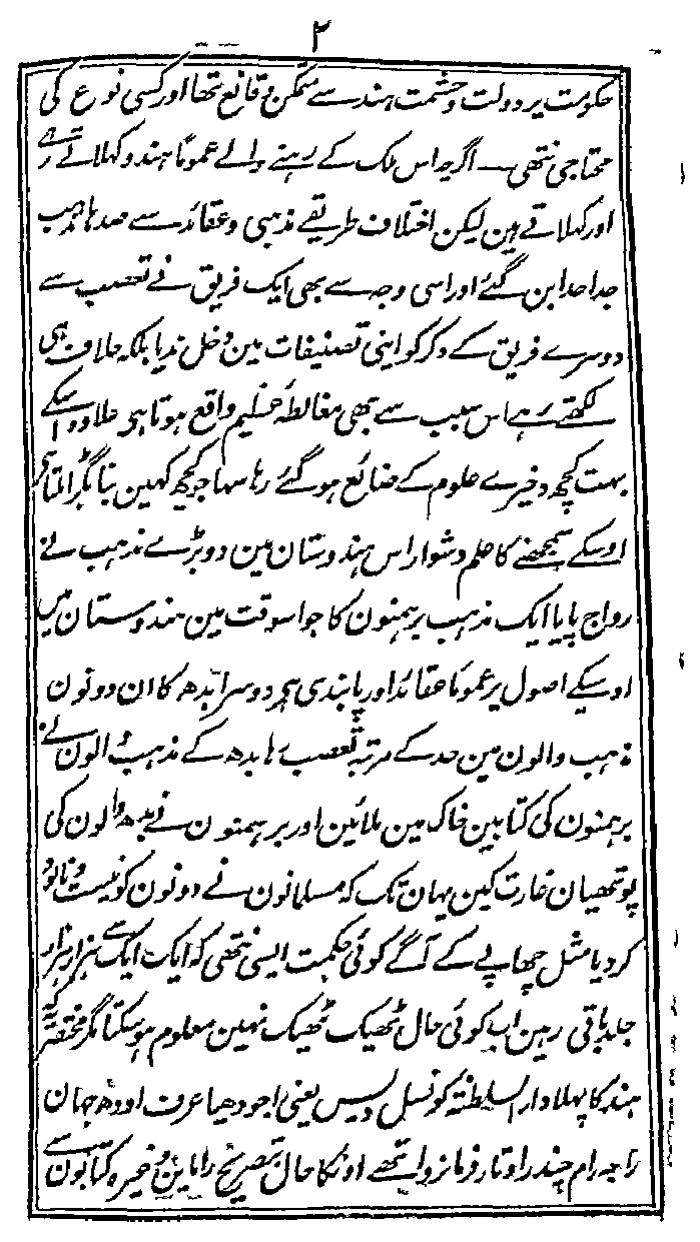 ۲
حکومت پر دولت و حشمت ہند سے متمکن و قانع تھا اور کسی نوع کی
محتاجی نتھی۔ اگرچہ اس ملک کے رہنے والے عموماً ہندو کہلاتے رہے
اور کہلاتے ہین لیکن اختلاف طریقے مذہبی و عقائد سے صدہا مذہب
جدا جدا بن گئے اور اسی وجہ سے بھی ایک فریق نے تعصب سے
دوسرے فریق کے ذکر کو اپنی تصنیفات مین دخل ندیا بلکہ خلاف ہی
لکھتے رہے اس سبب سے بھی مغالطۂ عظیم واقع ہوتا ہی علاوہ اسکے
بہت کچھ ذخیرے علوم کے ضائع ہو گئے رہا سہا جو کچھ کہین بنا بگڑا ملتا ہی
اوسکے سمجھنے کا علم دشوار اس ہندوستان مین دو بڑے مذہب نے
رواج پایا ایک مذہب برہمنون کا جو اسوقت مین ہندوستان مین
اوسیکے اصول پر عموماً عقائد اور پابندی ہی دوسرا بدھ کا ان دونون
مذہب والون مین حد کے مرتبہ تعصب رہا بدھ کے مذہب والون نے
برہمنون کی کتابین خاک مین ملائین اور برہمنون نے بدھ والون کی
پوتھیان غارت کین یہان تک کہ مسلمانون نے دونون کو نیست و نابود
کر دیا مثل چھاپے کے آگے کوئی حکمت ایسی نتھی کہ ایک ایک سے ہزار ہزار
جلد باقی رہین اب کوئی حال ٹھیک ٹھیک نہین معلوم ہو سکتا مگر مختصر یہ کہ
ہند کا پہلا دار السلطنۃ کونسل دیس یعنی اجودھیا عرف اودھ جہان
راجہ رام چندر اوتار فرمانروا تھے اونکا حال بتصریح راماین وغیرہ کتابون سے